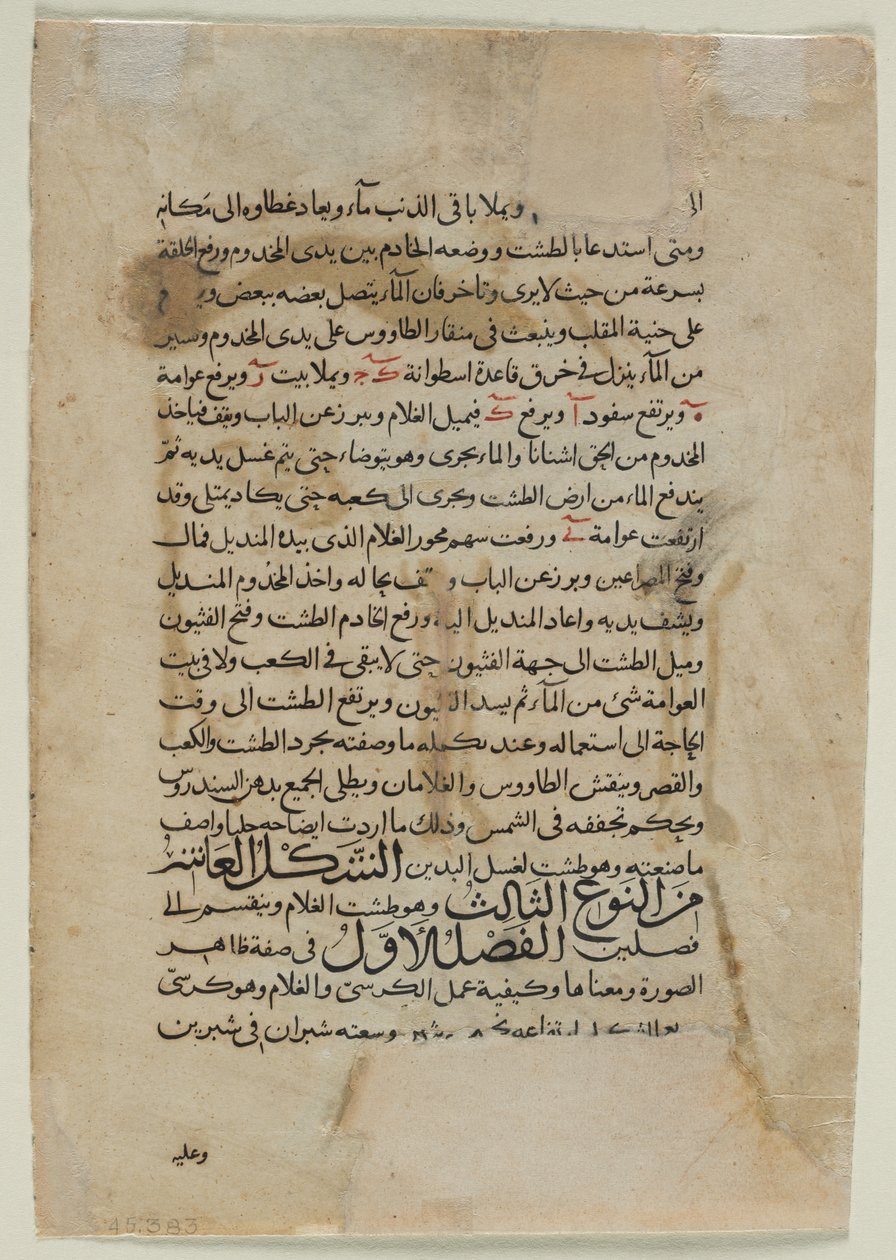 الى ويملا باقى الذنب مآء ويعاد غطاوه الى مَكانه
ومتى استدعا بالطشت ووضعه الخادم بين يدى المخدوم ورفع الحلقة
بسرعة من حيث لا يرى وتاخر فان المآء يتصل بعضه ببعض
على حنية المقلب وينبعث فى منقار الطاووس على يدى المخدوم ويسير
من المآء ينزل فى خرق قاعدة اسطوانة ويملا بيت ويرفع عوامة
ويرتفع سفود آ ويرفع فيميل الغلام ويبرز عن الباب ويقف فياخذ
المخدوم من الحق اشنانا والماء يجرى وهو يتوضاء حتى يتم غسل يديه ثمّ
يندفع الماء من ارض الطشت ويجرى الى كعبه حتى يكاد يمتلى وقد
ارتفعت عوامة ورفعت سهم محور الغلام الذى بيده المنديل فمال
وفتح المصراعين وبرز عن الباب بحاله واخذ المخدُوم المنديل
وينشف يديه واعاد المنديل اليه ورفع الخادم الطشت وفتح الفثيون
وميل الطشت الى جهة الفثيون حتى لا يبقى فى الكعب ولا فى بيت
العوامة شئ من المآء ثم يسد الفثيون ويرتفع الطشت الى وقت
الحاجة الى استعماله وعند تكمله ما وصفته يجرد الطشت والكعب
والقصر وينقش الطاووس والغلامان ويطلى الجميع بدهن السندروس
ويحكم تجففه فى الشمس وذلك ما اردت ايضاحه جليا واصف
ما صنعته وهو طشت لغسل اليدين الشَّكْلُ العَاشرُ
مِنَ النَوعِ الثَالِثُ وهو طشت الغلام وينقسم الى
فصلين الفَصْلُ الأَوَّلُ فى صفة ظاهر
الصورة ومعناها وكيفية عمل الكرسىّ والغلام وهو كرسىّ
ارتفاعه وسعته شبران فى شبرين
وعليه
45.383